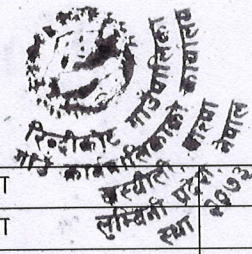 रिब्दीकोट गाउँपालिका
गाउँ कार्यपालिकाको कार्यालय
पाल्पा
लुम्बिनी प्रदेश, नेपाल
स्था २०७३
ा
ा